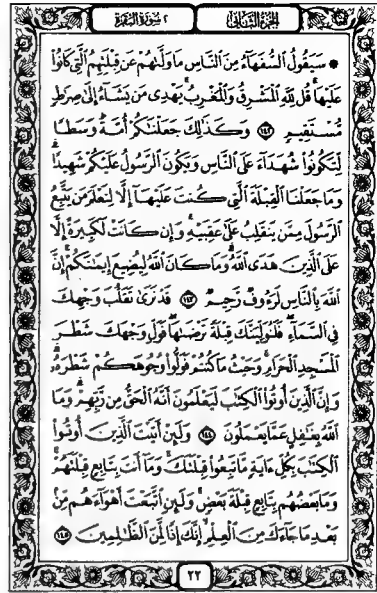 الجزء الثاني
٢ سورة البقرة
۞ سَيَقُولُ ٱلسُّفَهَآءُ مِنَ ٱلنَّاسِ مَا وَلَّىٰهُمْ عَن قِبْلَتِهِمُ ٱلَّتِى كَانُوا۟
عَلَيْهَا ۚ قُل لِّلَّهِ ٱلْمَشْرِقُ وَٱلْمَغْرِبُ ۚ يَهْدِى مَن يَشَآءُ إِلَىٰ صِرَٰطٍ
مُّسْتَقِيمٍ ١٤٢ وَكَذَٰلِكَ جَعَلْنَـٰكُمْ أُمَّةً وَسَطًا
لِّتَكُونُوا۟ شُهَدَآءَ عَلَى ٱلنَّاسِ وَيَكُونَ ٱلرَّسُولُ عَلَيْكُمْ شَهِيدًا ۗ
وَمَا جَعَلْنَا ٱلْقِبْلَةَ ٱلَّتِى كُنتَ عَلَيْهَآ إِلَّا لِنَعْلَمَ مَن يَتَّبِعُ
ٱلرَّسُولَ مِمَّن يَنقَلِبُ عَلَىٰ عَقِبَيْهِ ۚ وَإِن كَانَتْ لَكَبِيرَةً إِلَّا
عَلَى ٱلَّذِينَ هَدَى ٱللَّهُ ۗ وَمَا كَانَ ٱللَّهُ لِيُضِيعَ إِيمَـٰنَكُمْ ۚ إِنَّ
ٱللَّهَ بِٱلنَّاسِ لَرَءُوفٌ رَّحِيمٌ ١٤٣ قَدْ نَرَىٰ تَقَلُّبَ وَجْهِكَ
فِى ٱلسَّمَآءِ ۖ فَلَنُوَلِّيَنَّكَ قِبْلَةً تَرْضَىٰهَا ۚ فَوَلِّ وَجْهَكَ شَطْرَ
ٱلْمَسْجِدِ ٱلْحَرَامِ ۚ وَحَيْثُ مَا كُنتُمْ فَوَلُّوا۟ وُجُوهَكُمْ شَطْرَهُۥ ۗ
وَإِنَّ ٱلَّذِينَ أُوتُوا۟ ٱلْكِتَـٰبَ لَيَعْلَمُونَ أَنَّهُ ٱلْحَقُّ مِن رَّبِّهِمْ ۗ وَمَا
ٱللَّهُ بِغَـٰفِلٍ عَمَّا يَعْمَلُونَ ١٤٤ وَلَئِنْ أَتَيْتَ ٱلَّذِينَ أُوتُوا۟
ٱلْكِتَـٰبَ بِكُلِّ ءَايَةٍ مَّا تَبِعُوا۟ قِبْلَتَكَ ۚ وَمَآ أَنتَ بِتَابِعٍ قِبْلَتَهُمْ ۚ
وَمَا بَعْضُهُم بِتَابِعٍ قِبْلَةَ بَعْضٍ ۚ وَلَئِنِ ٱتَّبَعْتَ أَهْوَآءَهُم مِّنۢ
بَعْدِ مَا جَآءَكَ مِنَ ٱلْعِلْمِ ۙ إِنَّكَ إِذًا لَّمِنَ ٱلظَّـٰلِمِينَ ١٤٥
٢٢